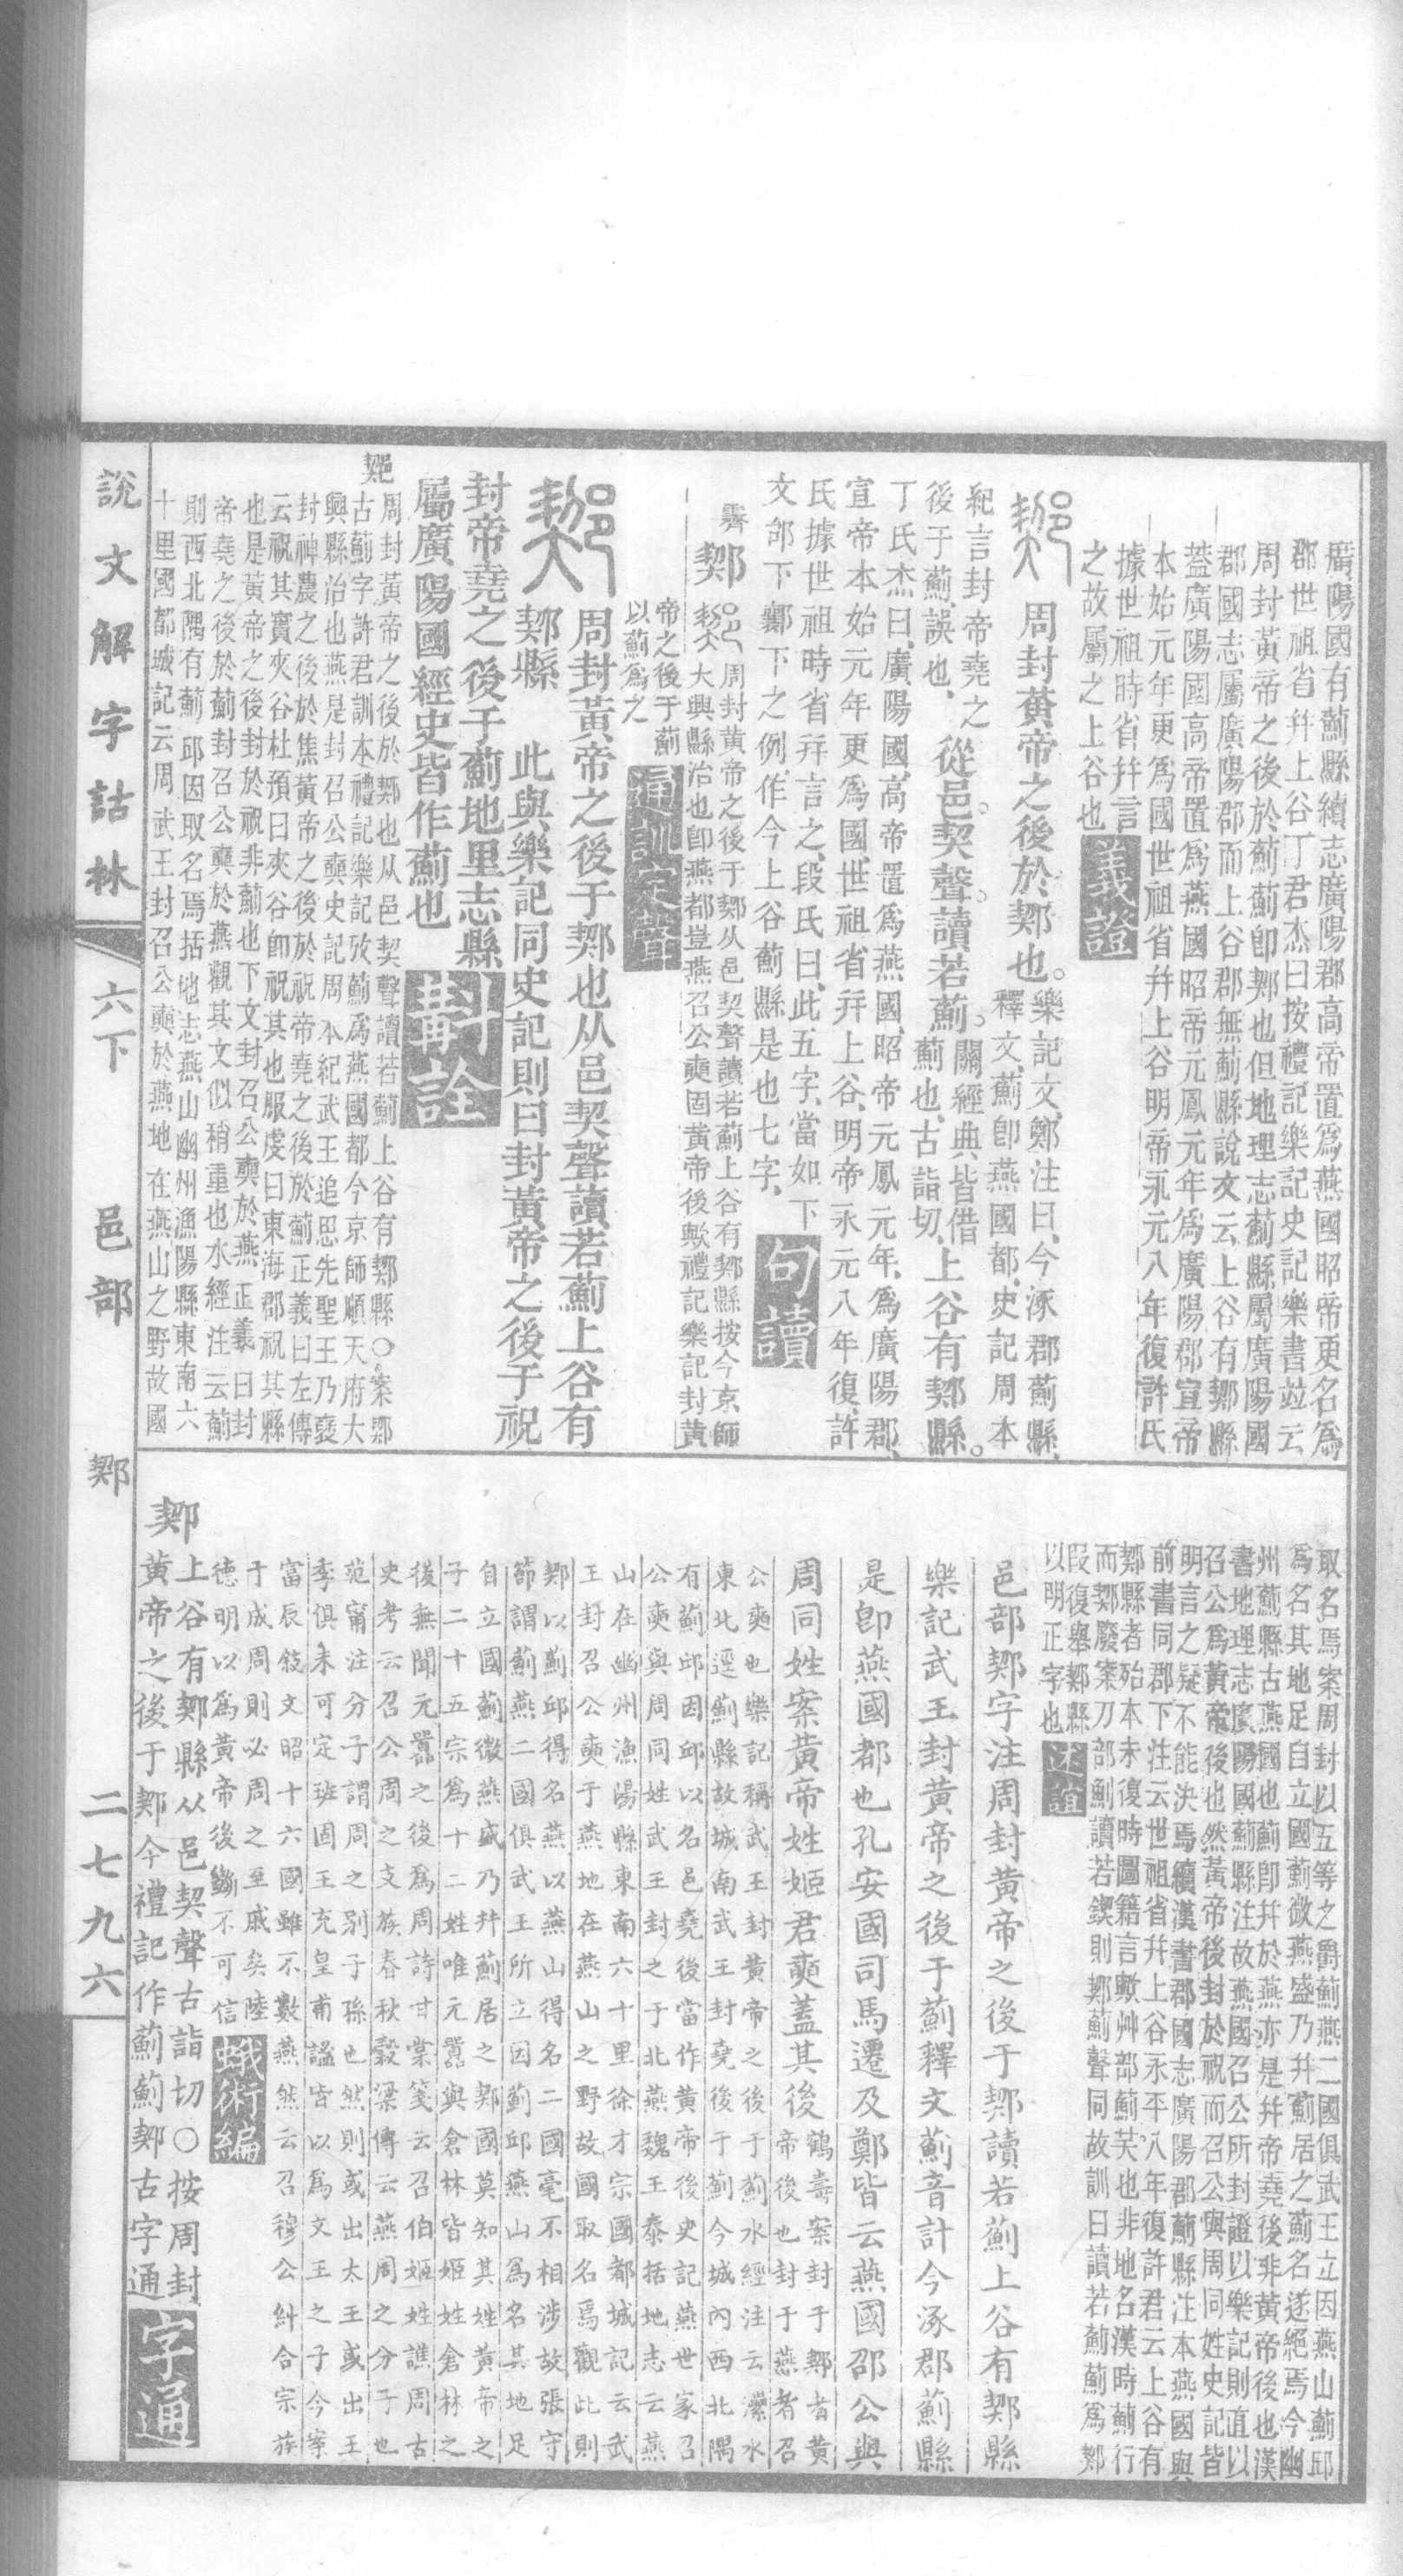 廣陽國有薊縣續志廣陽郡高帝置爲燕國昭帝更名爲
郡世祖省幷上谷丁君杰曰按禮記樂記史記樂書竝云
周封黃帝之後於薊薊卽鄚也但地理志薊縣屬廣陽國
郡國志屬廣陽郡而上谷郡無薊縣說文云上谷有䣆縣
蓋廣陽國高帝置爲燕國昭帝元鳳元年爲廣陽郡宣帝
本始元年更爲國世祖省幷上谷明帝永元八年復許氏
據世祖時省幷言
之故屬之上谷也
義證
周封黃帝之後於䣆也。
樂記文鄭注曰今涿郡薊縣、
釋文薊卽燕國都、史記周本
紀言封帝堯之
後于薊、誤也、
從邑。契聲。讀若薊。
關經典皆借
薊也、古詣切、
上谷有䣆縣。
丁氏杰曰、廣陽國、高帝置爲燕國、昭帝元鳳元年、爲廣陽郡、
宣帝本始元年更爲國、世祖省幷上谷、明帝永元八年復、許
氏據世祖時省幷言之、段氏曰、此五字、當如下
文郃下酅下之例、作今上谷薊縣是也七字、
句讀
䣆
周封黃帝之後于䣆从邑契聲讀若薊上谷有䣆縣按今京師
大興縣治也卽燕都豈燕召公奭固黃帝後歟禮記樂記封黃
帝之後于薊
以薊爲之
通訓定聲
周封黃帝之後于䣆也从邑契聲讀若薊上谷有
䣆縣　此與樂記同史記則曰封黃帝之後于祝
封帝堯之後于薊地里志縣
屬廣陽國經史皆作薊也
斠詮
周封黃帝之後於䣆也从邑契聲讀若薊上谷有䣆縣○案䣆
古薊字許君訓本禮記樂記攷薊爲燕國都今京師順天府大
興縣治也燕是封召公奭史記周本紀武王追思先聖王乃襃
封神農之後於焦黃帝之後於祝帝堯之後於薊正義曰左傳
云祝其實夾谷杜預曰夾谷卽祝其也服虔曰東海郡祝其縣
也是黃帝之後封於祝非薊也下文封召公奭於燕正義曰封
帝堯之後於薊封召公奭於燕觀其文似稍重也水經注云薊
則西北隅有薊邱因取名焉括地志燕山幽州漁陽縣東南六
十里國都城記云周武王封召公奭於燕地在燕山之野故國
取名焉案周封以五等之爵薊燕二國俱武王立因燕山薊邱
爲名其地足自立國薊微燕盛乃幷薊居之薊名遂絕焉今幽
州薊縣古燕國也薊卽幷於燕亦是幷帝堯後非黃帝後也漢
書地理志廣陽國薊縣注故燕國召公所封證以樂記則直以
召公爲黃帝後也然黃帝後封於祝而召公與周同姓史記皆
明言之疑不能決焉續漢書郡國志廣陽郡薊縣注本燕國與
前書同郡下注云世祖省幷上谷永平八年復許君云上谷有
䣆縣者殆本未復時圖籍言歟艸部薊芺也非地名漢時薊行
而䣆廢案刀部魝讀若鍥則䣆薊聲同故訓曰讀若薊薊爲䣆
叚復舉䣆縣
以明正字也
述誼
邑部䣆字注周封黃帝之後于䣆讀若薊上谷有䣆縣
樂記武王封黃帝之後于薊釋文薊音計今涿郡薊縣
是卽燕國都也孔安國司馬遷及鄭皆云燕國邵公與
周同姓案黃帝姓姬君奭蓋其後
鶴壽案封于䣆者黃
帝後也封于燕者召
公奭也樂記稱武王封黃帝之後于薊水經注云㶟水
東北逕薊縣故城南武王封堯後于薊今城內西北隅
有薊邱因邱以名邑堯後當作黃帝後史記燕世家召
公奭與周同姓武王封之于北燕魏王泰括地志云燕
山在幽州漁陽縣東南六十里徐才宗國都城記云武
王封召公奭于燕地在燕山之野故國取名焉觀此則
䣆以薊邱得名燕以燕山得名二國毫不相涉故張守
節謂薊燕二國俱武王所立因薊邱燕山爲名其地足
自立國薊微燕盛乃幷薊居之䣆國莫知其姓黃帝之
子二十五宗爲十二姓唯元囂與倉林皆姬姓倉林之
後無聞元囂之後爲周詩甘棠箋云召伯姬姓譙周古
史考云召公周之支族春秋穀梁傳云燕周之分子也
范甯注分子謂周之別子孫也然則或出太王或出王
季俱未可定班固王充皇甫謐皆以爲文王之子今案
富辰敍文昭十六國雖不數燕然云召穆公糾合宗族
于成周則必周之至戚矣陸
德明以爲黃帝後繆不可信
蛾術編
䣆
上谷有䣆縣从邑契聲古詣切○按周封
黃帝之後于䣆今禮記作薊薊䣆古字通
字通
說文解字詁林　六下　邑部　䣆　二七九六